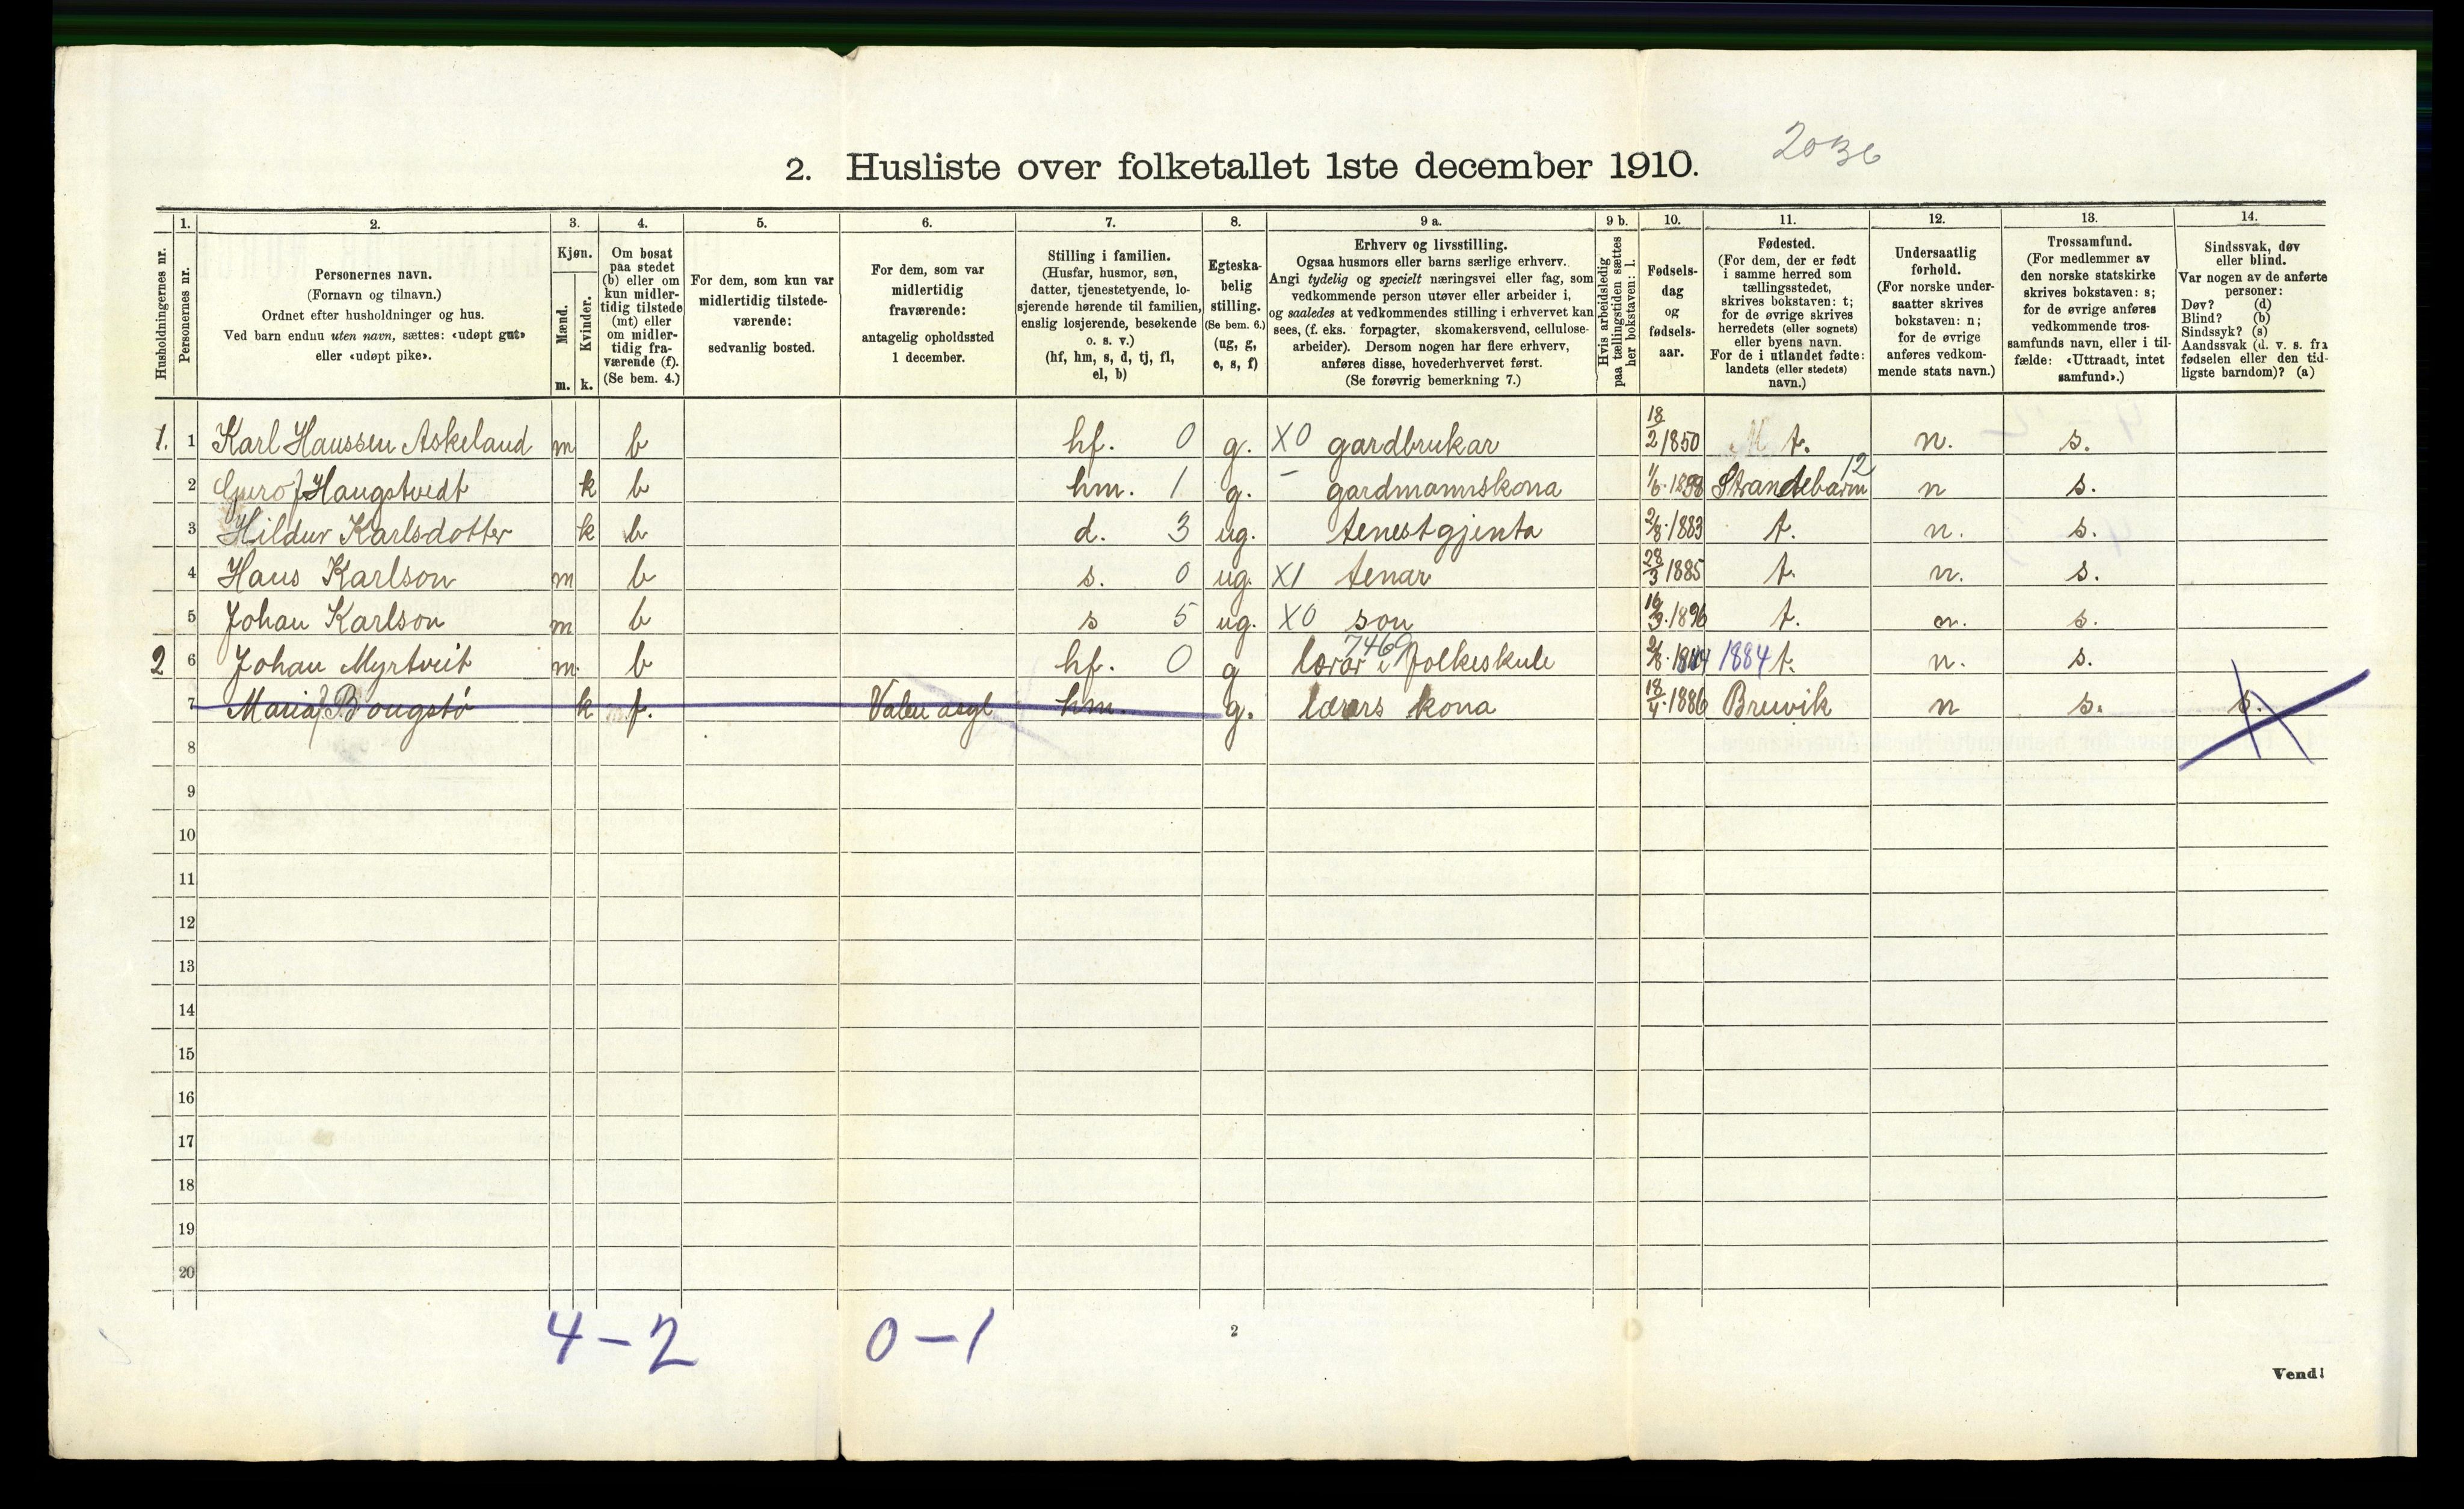 2. Husliste over folketallet 1ste december 1910. 2036
1. 2. 3. 4. 5. 6. 7. 8. 9 a. 9 b. 10. 11. 12. 13. 14.
Husholdningernes nr.
Personernes nr.
Personernes navn.
(Fornavn og tilnavn.)
Ordnet efter husholdninger og hus.
Ved barn endnu uten navn, sættes: «udøpt gut»
eller «udøpt pike».
Kjøn.
Mænd.
m.
Kvinder.
k.
Om bosat
paa stedet
(b) eller om
kun midler-
tidig tilstede
(mt) eller
om midler-
tidig fra-
værende (f).
(Se bem. 4.)
For dem, som kun var
midlertidig tilstede-
værende:
sedvanlig bosted.
For dem, som var
midlertidig
fraværende:
antagelig opholdssted
1 december.
Stilling i familien.
(Husfar, husmor, søn,
datter, tjenestetyende, lo-
sjerende hørende til familien,
enslig losjerende, besøkende
o. s. v.)
(hf, hm, s, d, tj, fl,
el, b)
Egteska-
belig
stilling.
(Se bem. 6.)
(ug, g,
e, s, f)
Erhverv og livsstilling.
Ogsaa husmors eller barns særlige erhverv.
Angi tydelig og specielt næringsvei eller fag, som
vedkommende person utøver eller arbeider i,
og saaledes at vedkommendes stilling i erhvervet kan
sees, (f. eks. forpagter, skomakersvend, cellulose-
arbeider). Dersom nogen har flere erhverv,
anføres disse, hovederhvervet først.
(Se forøvrig bemerkning 7.)
Hvis arbeidsledig
paa tællingstiden sættes
her bokstaven: l.
Fødsels-
dag
og
fødsels-
aar.
Fødested.
(For dem, der er født
i samme herred som
tællingsstedet,
skrives bokstaven: t;
for de øvrige skrives
herredets (eller sognets)
eller byens navn.
For de i utlandet fødte:
landets (eller stedets)
navn.)
Undersaatlig
forhold.
(For norske under-
saatter skrives
bokstaven: n;
for de øvrige
anføres vedkom-
mende stats navn.)
Trossamfund.
(For medlemmer av
den norske statskirke
skrives bokstaven: s;
for de øvrige anføres
vedkommende tros-
samfunds navn, eller i til-
fælde: «Uttraadt, intet
samfund».)
Sindssvak, døv
eller blind.
Var nogen av de anførte
personer:
Døv? (d)
Blind? (b)
Sindssyk? (s)
Aandssvak (d. v. s. fra
fødselen eller den tid-
ligste barndom)? (a)
1. 1 Karl Hanssen Askeland m b hf. 0 g. X0 gardbrukar 18/2 1850 t. n. s.
2 Guro J Haugstvedt k b hm. 1 g. – gardmannskona Strandebarm 12 n s.
3 Hildur Karlsdotter k b d. 3 ug. tenestgjenta 2/8 1883 t. n. s.
4 Hans Karlson m b s. 0 ug. X1 tenar 28/3 1885 t. n. s.
5 Johan Karlson m b s 5 ug. X0 son 1896 t. n. s.
7469
2 6 Johan Myrtveit m. b hf. 0 g lærar i folkeskule 1884 t. n. s.
7 Maria k f. Valen asyl hm g. lærars kona 18/4 1886 Bruvik n s. s.
8
9
10
11
12
13
14
15
16
17
18
19
20
4 – 2 0 – 1
2
Vend!